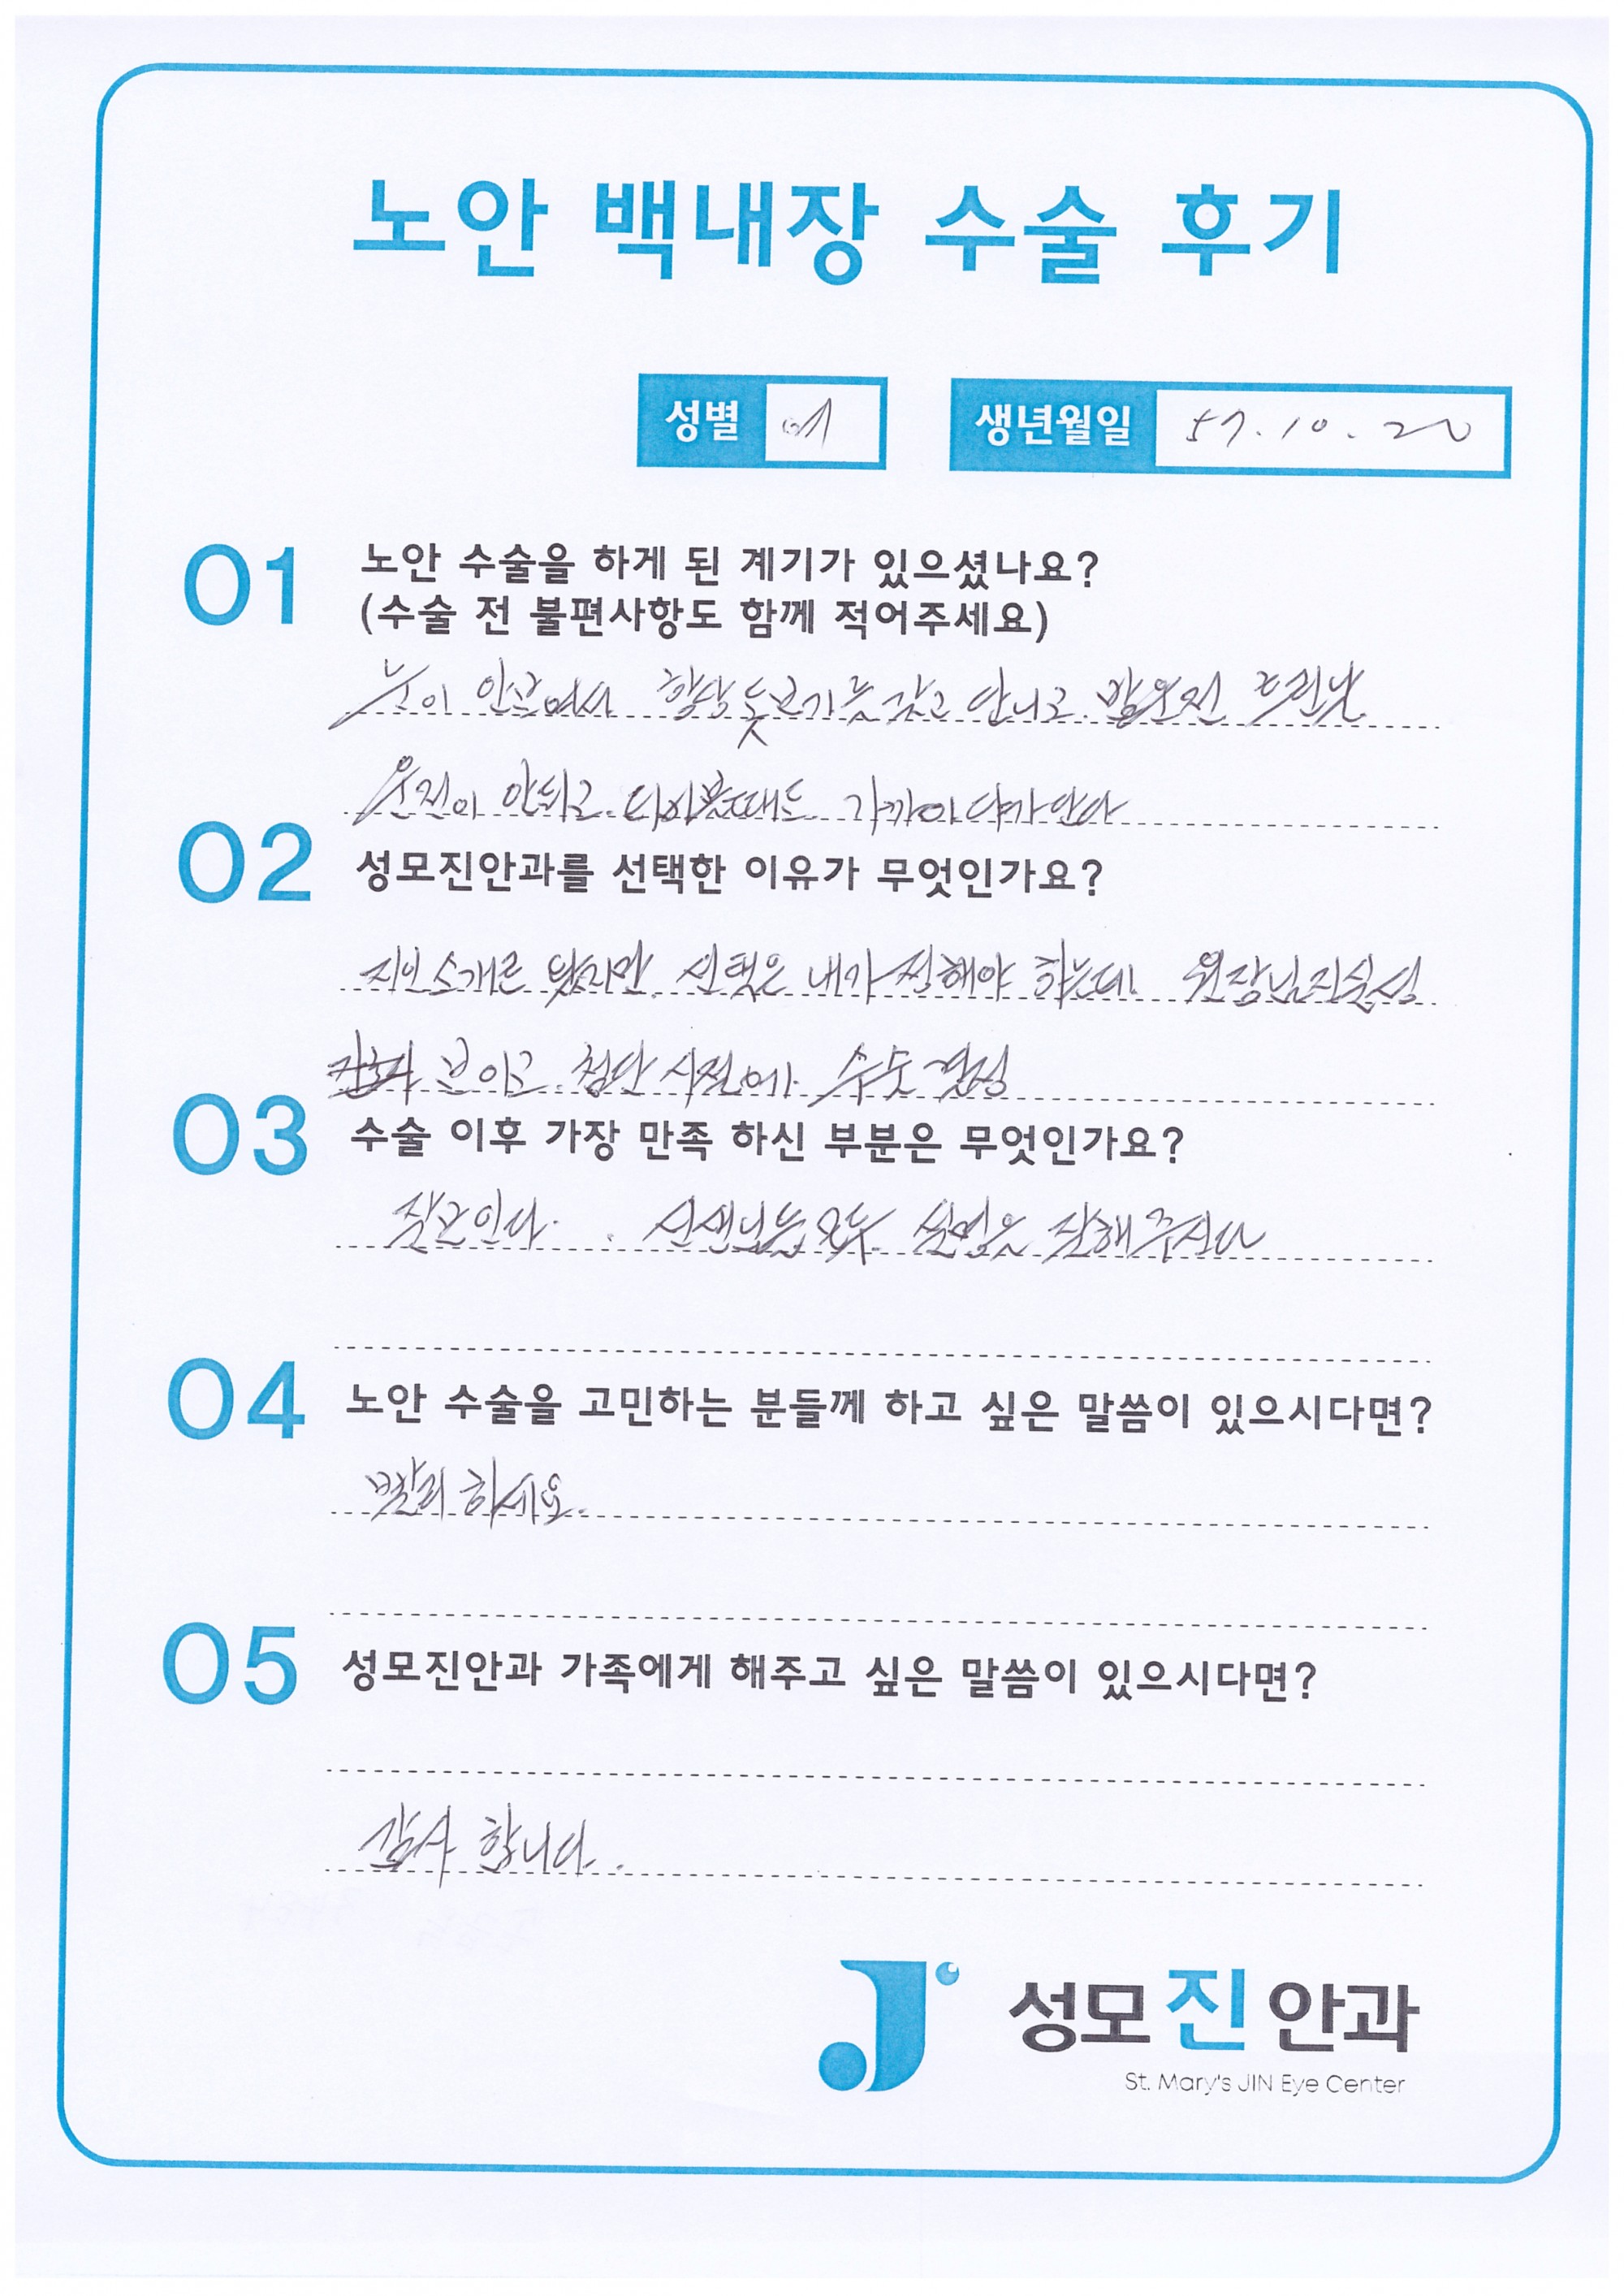 노안 백내장 수술 후기
성별 여 생년월일 57.10.20
01 노안 수술을 하게 된 계기가 있으셨나요?
(수술 전 불편사항도 함께 적어주세요)
눈이 안보여서 항상 돋보기를 갖고 다니고 밤운전 흐린날
운전이 안되고 티비볼때도 가까이 다가 안다
02 성모진안과를 선택한 이유가 무엇인가요?
지인소개로 왔지만 선택은 내가 정해야 하는데 원장님진실성
보이고 첨단 시설에 수술 결정
03 수술 이후 가장 만족 하신 부분은 무엇인가요?
잘보인다. 선생님들 모두 설명을 잘해주신다
04 노안 수술을 고민하는 분들께 하고 싶은 말씀이 있으시다면?
빨리 하세요.
05 성모진안과 가족에게 해주고 싶은 말씀이 있으시다면?
감사 합니다.
성모진안과
St. Mary's JIN Eye Center